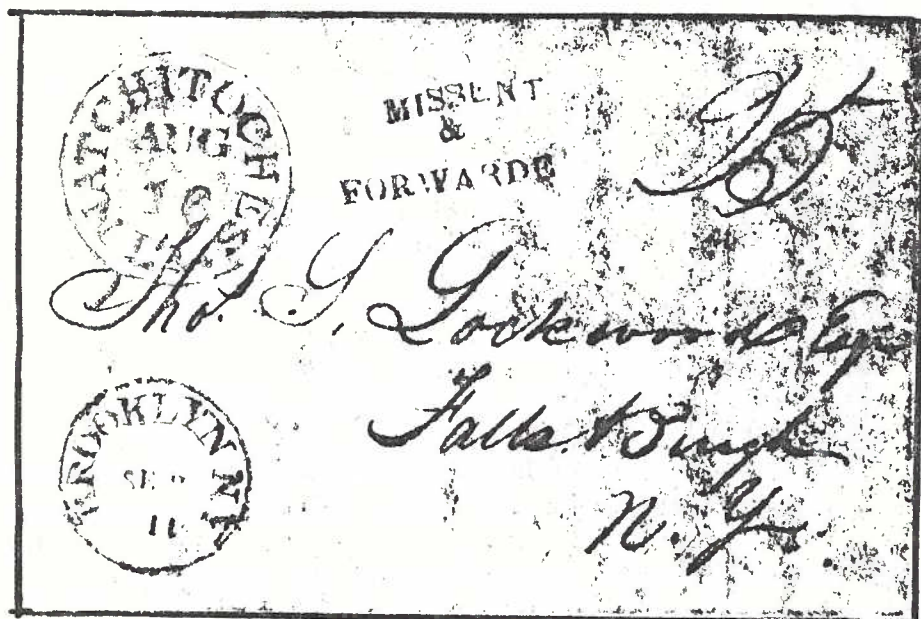 NATCHITOCHES
AUG
MISSENT
&
FORWARDE
50
Tho. S. Lockwood Esqr
Fallsburgh
N. Y.
BROOKLYN N.Y.
SEP
11